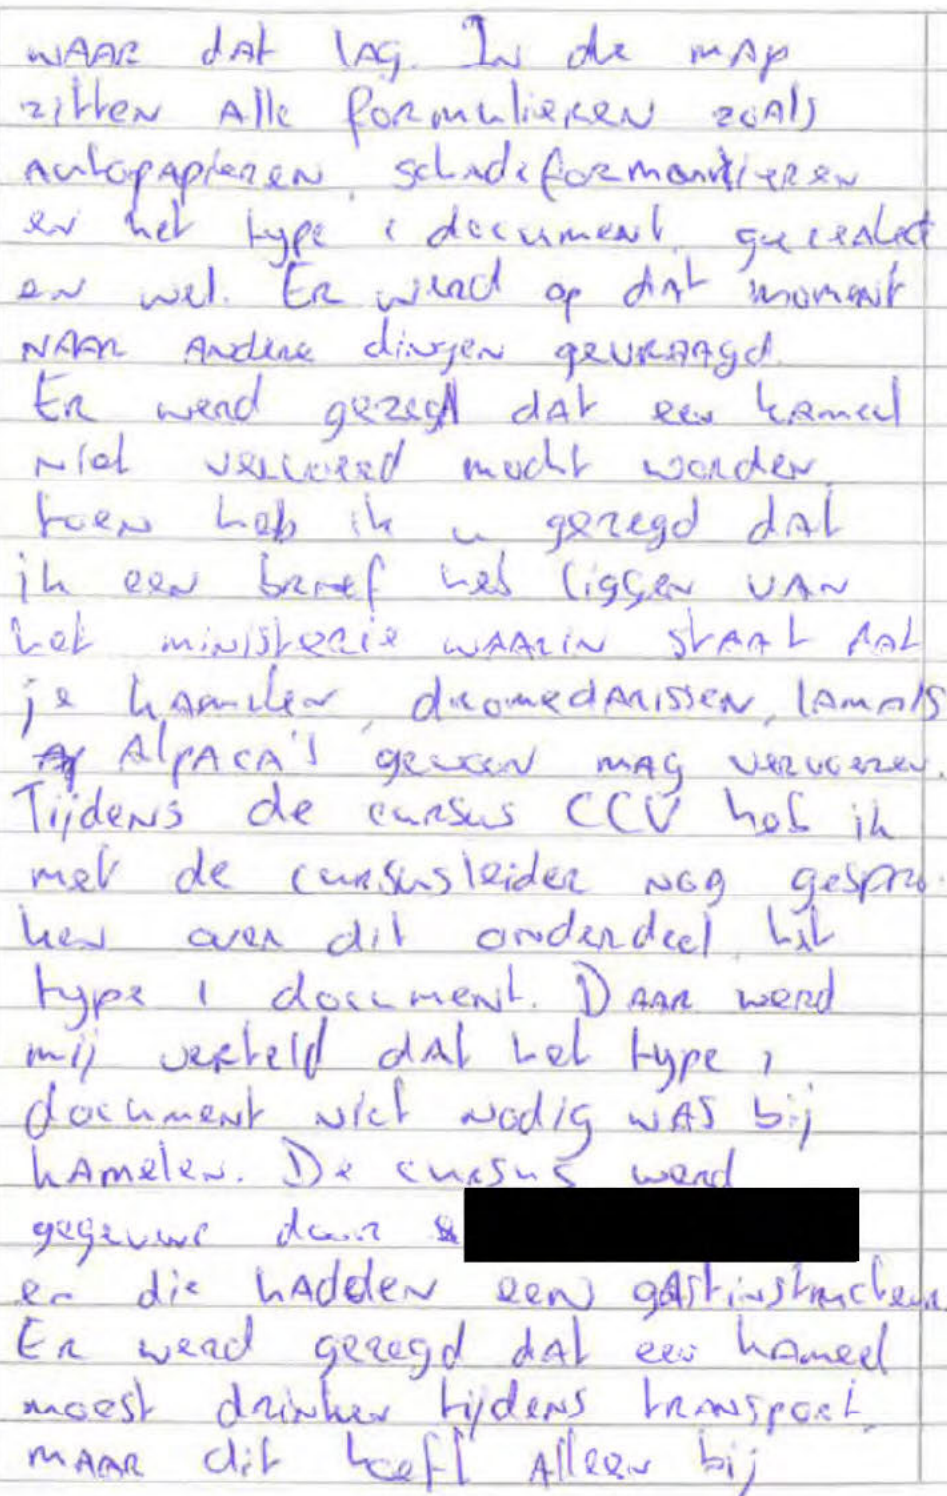 waar dat lag. In de map
zitten alle formulieren zoals
autopapieren, schadeformulieren
en het type 1 document,
en wel. Er werd op dat moment
naar andere dingen gevraagd.
Er werd gezegd dat een kameel
niet vervoerd mocht worden,
toen heb ik u gezegd dat
ik een brief heb liggen van
het ministerie waarin staat dat
je kamelen, dromedarissen, lama's
Alpaca's gewoon mag vervoeren.
Tijdens de cursus CCV heb ik
met de cursusleider nog gespro-
ken over dit onderdeel, het
type 1 document. Daar werd
mij verteld dat het type 1
document niet nodig was bij
kamelen. De cursus werd
gegeven door
en die hadden een gastinstructeur.
Er werd gezegd dat een kameel
moest drinken tijdens transport,
maar dit hoeft alleen bij